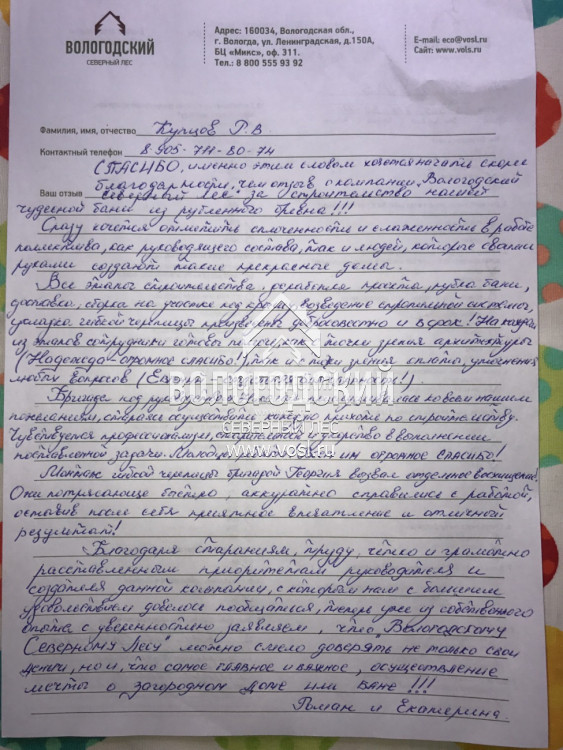 ВОЛОГОДСКИЙ
СЕВЕРНЫЙ ЛЕС
Адрес: 160034, Вологодская обл.,
г. Вологда, ул. Ленинградская, д.150А,
БЦ «Микс», оф. 311.
Тел.: 8 800 555 93 92
E-mail; eco@vosl.ru
Сайт: www.vols.ru
Фамилия, имя, отчество Купцов Р.В
Контактный телефон 8-905-741-80-74
СПАСИБО, именно этим словом хочется начать скорее
благодарности, чем отзыв о компании „Вологодский
Ваш отзыв северный лес" за строительство нашей
чудесной бани из рубленного бревна!!!
Сразу хочется отметить сплоченность и слаженность в работе
коллектива, как руководящего состава, так и людей, которые своими
руками создают такие прекрасные дома.
Все этапы строительства, доработка проекта, рубка бани,
доставка, сборка на участке под крышу, возведение стропильной системы,
укладка гибкой черепицы добросовестно и в срок! На каждом
из этапов сотрудники готовы с точки зрения архитектуры
(Надежда-огромное спасибо!), так и с точки зрения оплаты, уточнения
любых вопросов
Бригада под по всем нашим
пожеланиям, стараясь осуществить качество проекта по строительству.
Чувствуется профессионализм, и упорство в выполнении
поставленной задачи. им огромное спасибо!
Монтаж гибкой черепицы бригадой Георгия вызвал отдельное восхищение!
Они потрясающе быстро, аккуратно справились с работой,
оставив после себя приятное впечатление и отличный
результат!
Благодаря стараниям, труду, чётко и грамотно
расставленным приоритетам руководителя и
создателя данной компании, с которым нам с большим
удовольствием довелось пообщаться, теперь уже из собственного
опыта с уверенностью заявляем, что „Вологодскому
Северному Лесу" можно смело доверять не только свои
деньги, но и, что самое главное и важное, осуществление
мечты о загородном доме или бане!!!
Роман и Екатерина.
ВОЛОГОДСКИЙ
СЕВЕРНЫЙ ЛЕС
www.vosl.ru